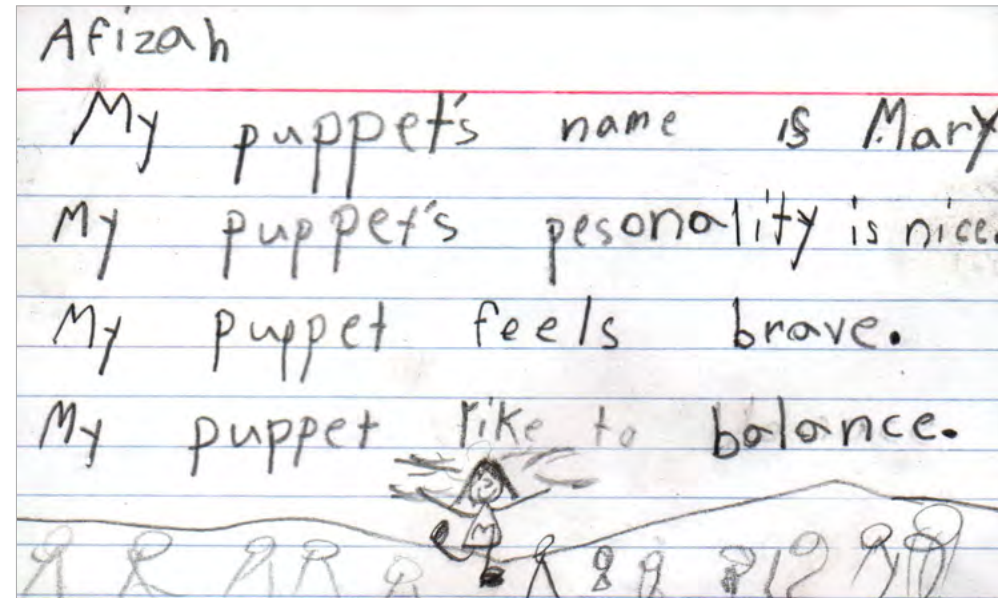 Afizah
My puppet's name is Mary
My puppet's pesonality is nice.
My puppet feels brave.
My puppet like to balance.